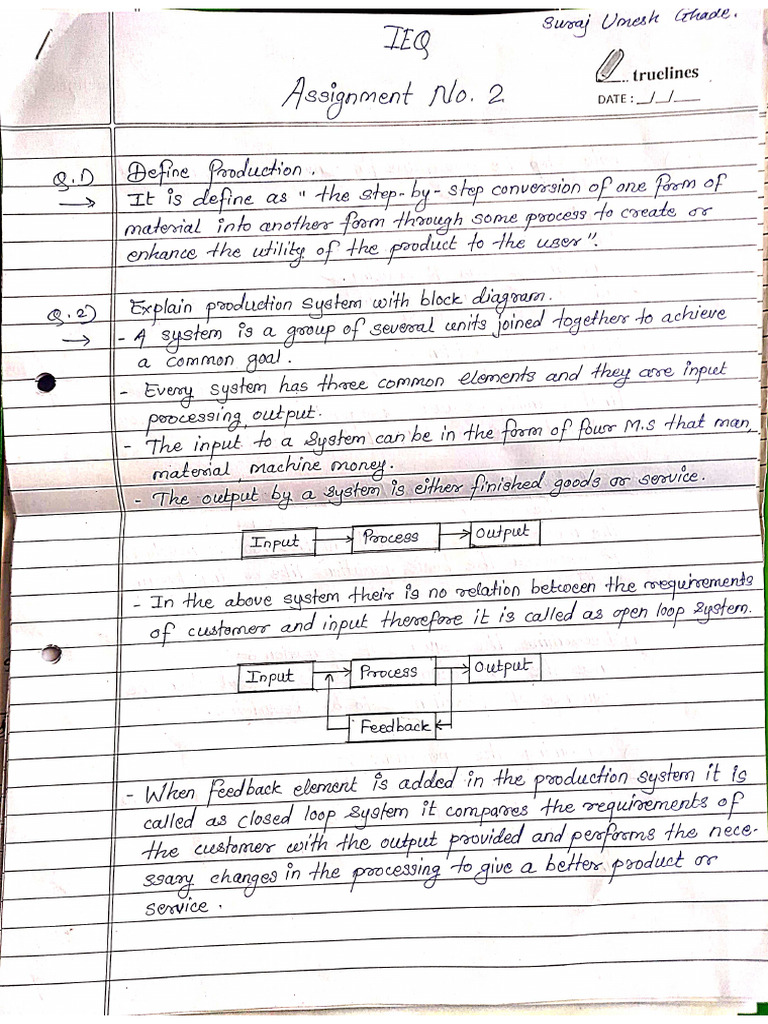 Suraj Umesh Ghade.
IEQ
truelines
Assignment No. 2
DATE: _/_/__
Q.1) Define Production.
→ It is define as " the step-by-step conversion of one form of
material into another form through some process to create or
enhance the utility of the product to the user".
Q.2) Explain production system with block diagram.
→ - A system is a group of several units joined together to achieve
a common goal.
- Every system has three common elements and they are input
processing, output.
- The input to a system can be in the form of four M.S that man,
material, machine money.
- The output by a system is either finished goods or service.
Input Process Output
- In the above system their is no relation between the requirements
of customer and input therefore it is called as open loop system.
Input Process Output
Feedback
- When feedback element is added in the production system it is
called as closed loop system it compares the requirements of
the customer with the output provided and performs the nece-
ssary changes in the processing to give a better product or
service.